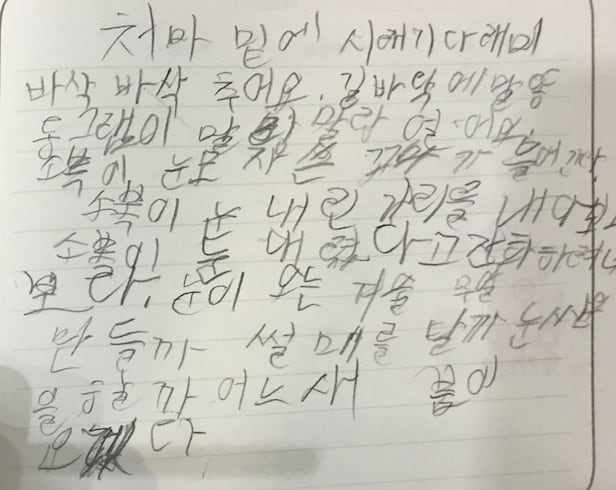 처마 밑에 시래기 다래미
바삭 바삭 추어요. 길바닥에 말똥
동그램이 말랑 말랑 얼어요.
소복이 눈모자 쓴 꼬마가 들어간다
소복이 눈 내린 거리를 내다보
소복이 눈 내렸다고 전화하려
보라. 눈이 오는 겨울 무얼
만들까 썰매를 탈까 눈싸움
을 할까 어느새 봄이
오겠다